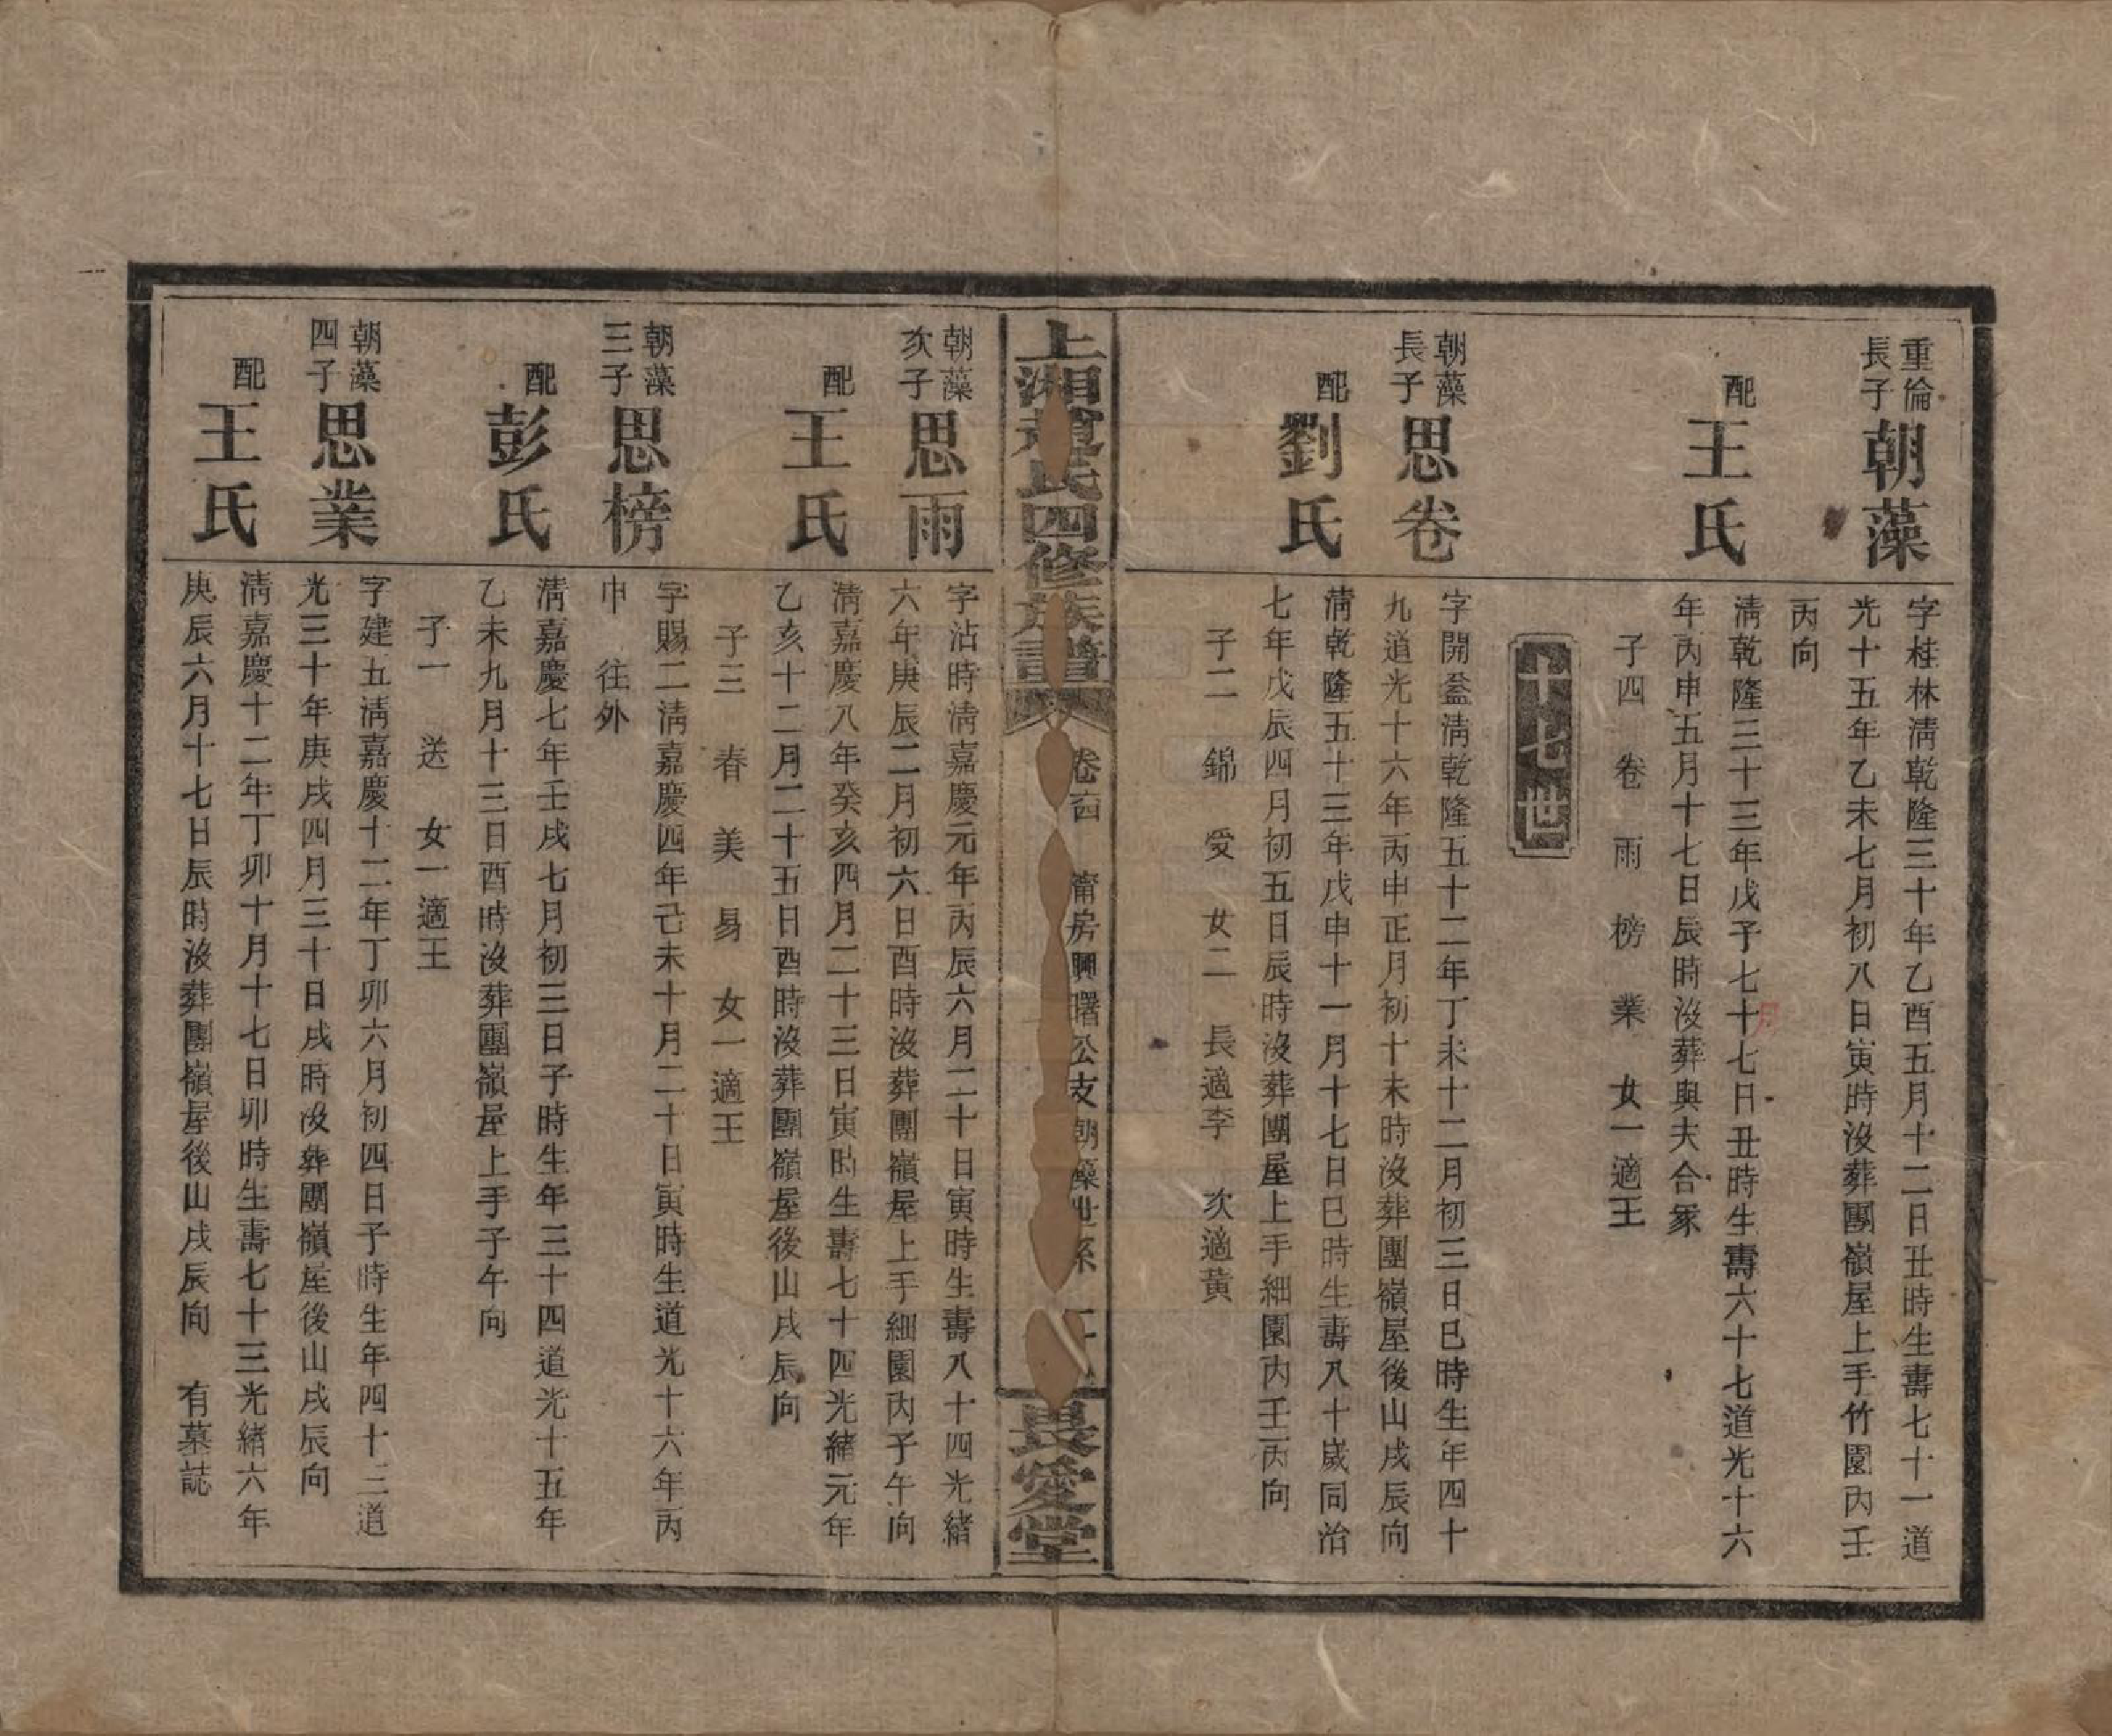 重倫
長子
朝藻
字桂林淸乾隆三十年乙酉五月十二日丑時生壽七十一道
光十五年乙未七月初八日寅時沒葬團嶺屋上手竹園內壬
丙向
配
王氏
淸乾隆三十三年戊子七十七日丑時生壽六十七道光十六
月
年丙申五月十七日辰時沒葬與夫合冢
子四 卷 雨 榜 業 女一適王
十七世
朝藻
長子
思卷
字開益淸乾隆五十二年丁未十二月初三日巳時生年四十
九道光十六年丙申正月初十未時沒葬團嶺屋後山戌辰向
配
劉氏
淸乾隆五十三年戊申十一月十七日巳時生壽八十歲同治
七年戊辰四月初五日辰時沒葬團屋上手細園內壬丙向
子二 錦 受 女二 長適李 次適黃
上湘 氏四修族譜
卷 房興曙公支朝藻世系
長愛堂
朝藻
次子
思雨
字沾時淸嘉慶元年丙辰六月二十日寅時生壽八十四光緖
六年庚辰二月初六日酉時沒葬團嶺屋上手細園內子午向
配
王氏
淸嘉慶八年癸亥四月二十三日寅時生壽七十四光緖元年
乙亥十二月二十五日酉時沒葬團嶺屋後山戌辰向
子三 春 美 易 女一適王
朝藻
三子
思榜
字賜二淸嘉慶四年己未十月二十日寅時生道光十六年丙
申 往外
配
彭氏
淸嘉慶七年壬戌七月初三日子時生年三十四道光十五年
乙未九月十三日酉時沒葬團嶺屋上手子午向
子一 送 女一適王
朝藻
四子
思業
字建五淸嘉慶十二年丁卯六月初四日子時生年四十三道
光三十年庚戌四月三十日戌時沒葬團嶺屋後山戌辰向
配
王氏
淸嘉慶十二年丁卯十月十七日卯時生壽七十三光緖六年
庚辰六月十七日辰時沒葬團嶺屋後山戌辰向 有墓誌